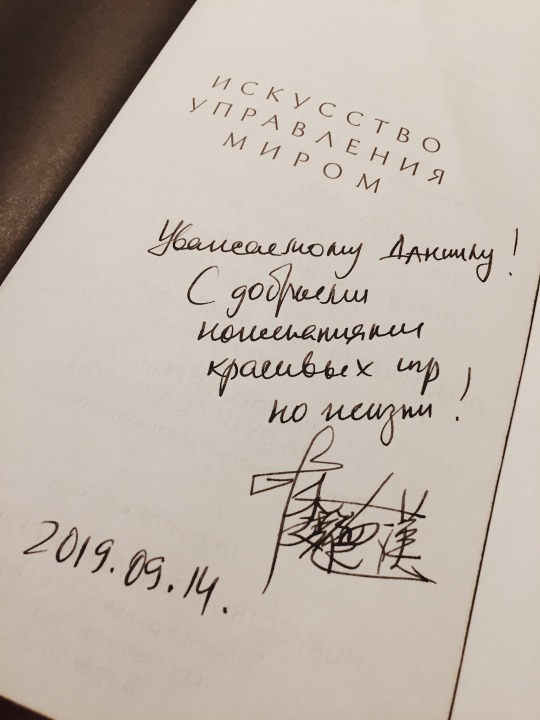 ИСКУССТВО
УПРАВЛЕНИЯ
МИРОМ
Уважаемому Данилу!
С добрыми
пожеланиями
красивых игр
по жизни!
2019.09.14.